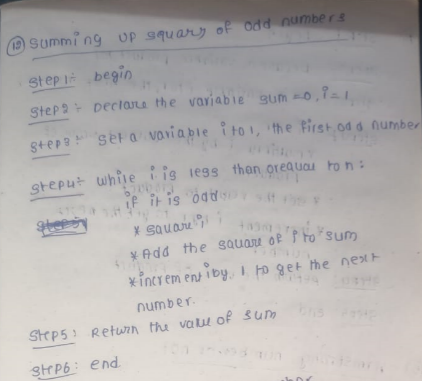 (13) summing up square of odd numbers
Step1:- begin
Step2:- Declare the variable sum=0, i=1
Step3:- Set a variable i to 1, the first odd number
Step4:- while i is less than or equal to n:
if it is odd
* square i
* Add the square of i to sum
* increment i by 1 to get the next
number.
Step5: Return the value of sum
Step6: end.